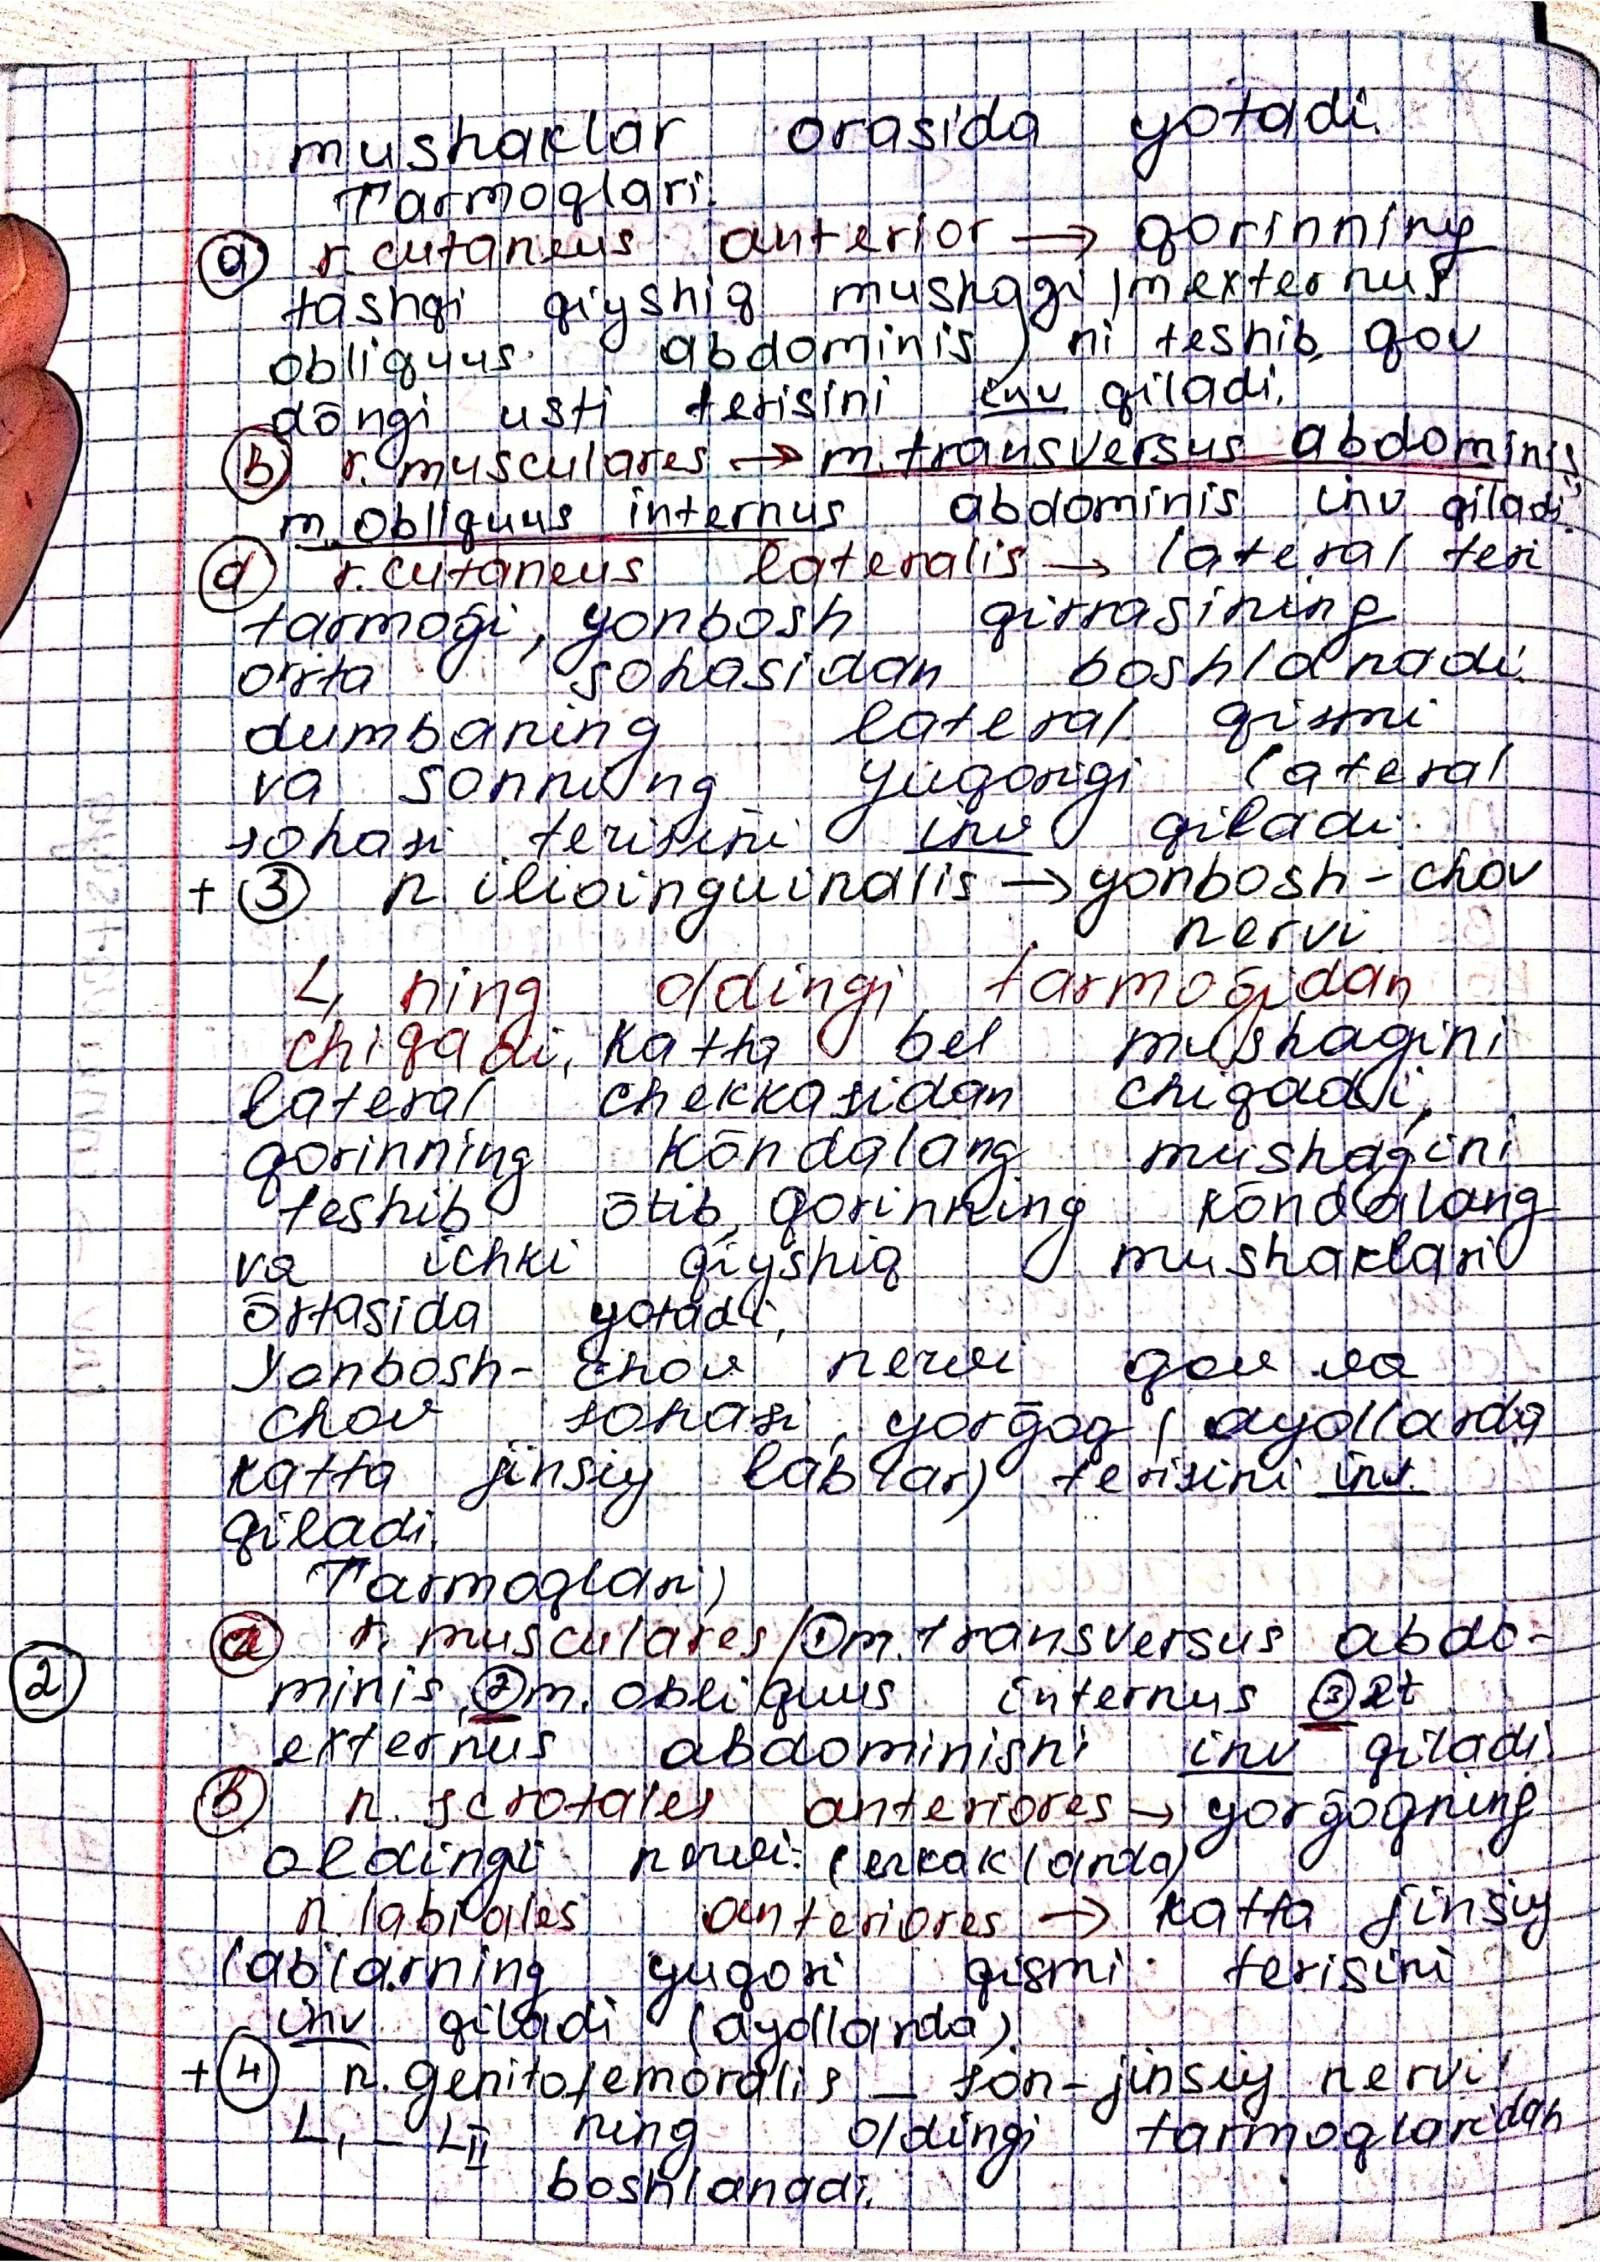 mushaklar orasida yotadi.
Tarmoqlari:
(a) r. cutaneus anterior → qorinning
tashqi qiyshiq mushagi (m externus
obliquus abdominis) ni teshib, qov
dōngi usti terisini inv qiladi.
(b) r. musculares → m. transversus abdominis,
m. obliquus internus abdominis inv qiladi.
(d) r. cutaneus lateralis → lateral teri
tarmoği, yonbosh qirrasining
o'rta sohasidan boshlanadi.
dumbaning lateral qismi
va sonning yuqorigi lateral
sohasi terisini inv qiladi.
+ (3) n ilioinguinalis → yonbosh-chov
nervi
L, ning oldingi tarmoğidan
chiqadi, Katta bel mushagini
lateral chekkasidan chiqadi,
qorinning kōndalang mushagini
teshib ōtib, qorinning kōndalang
va ichki qiyshiq mushaklari
ōrtasida yotadi,
Yonbosh-chov nervi qov va
chov sohasi, yorğoq (ayollarda
katta jinsiy lablar) terisini inv.
qiladi.
Tarmoqlari)
(a) r. musculares / (1) m. transversus abdo-
minis, (2) m. obliquus internus (3) et
(2)
externus abdominisni inv qiladi.
(B) n. scrotales anteriores → yorğoqning
oldingi nervi. (erkaklarda)
n labiales anteriores → katta jinsiy
lablarning yuqori qismi terisini
inv qiladi (ayollarda).
+ (4) n. genitofemoralis – son-jinsiy nervi
L, – LII ning oldingi tarmoqlaridan
boshlanadi.